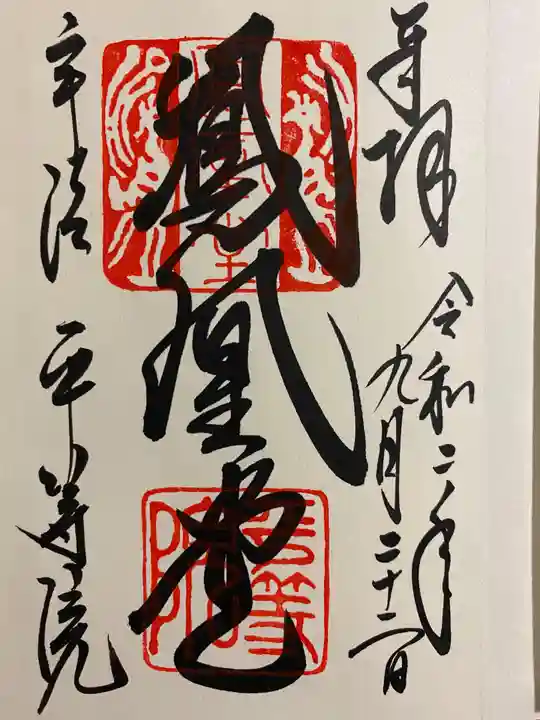 奉拝
令和二年
九月二十二日
鳳凰堂
宇治 平等院